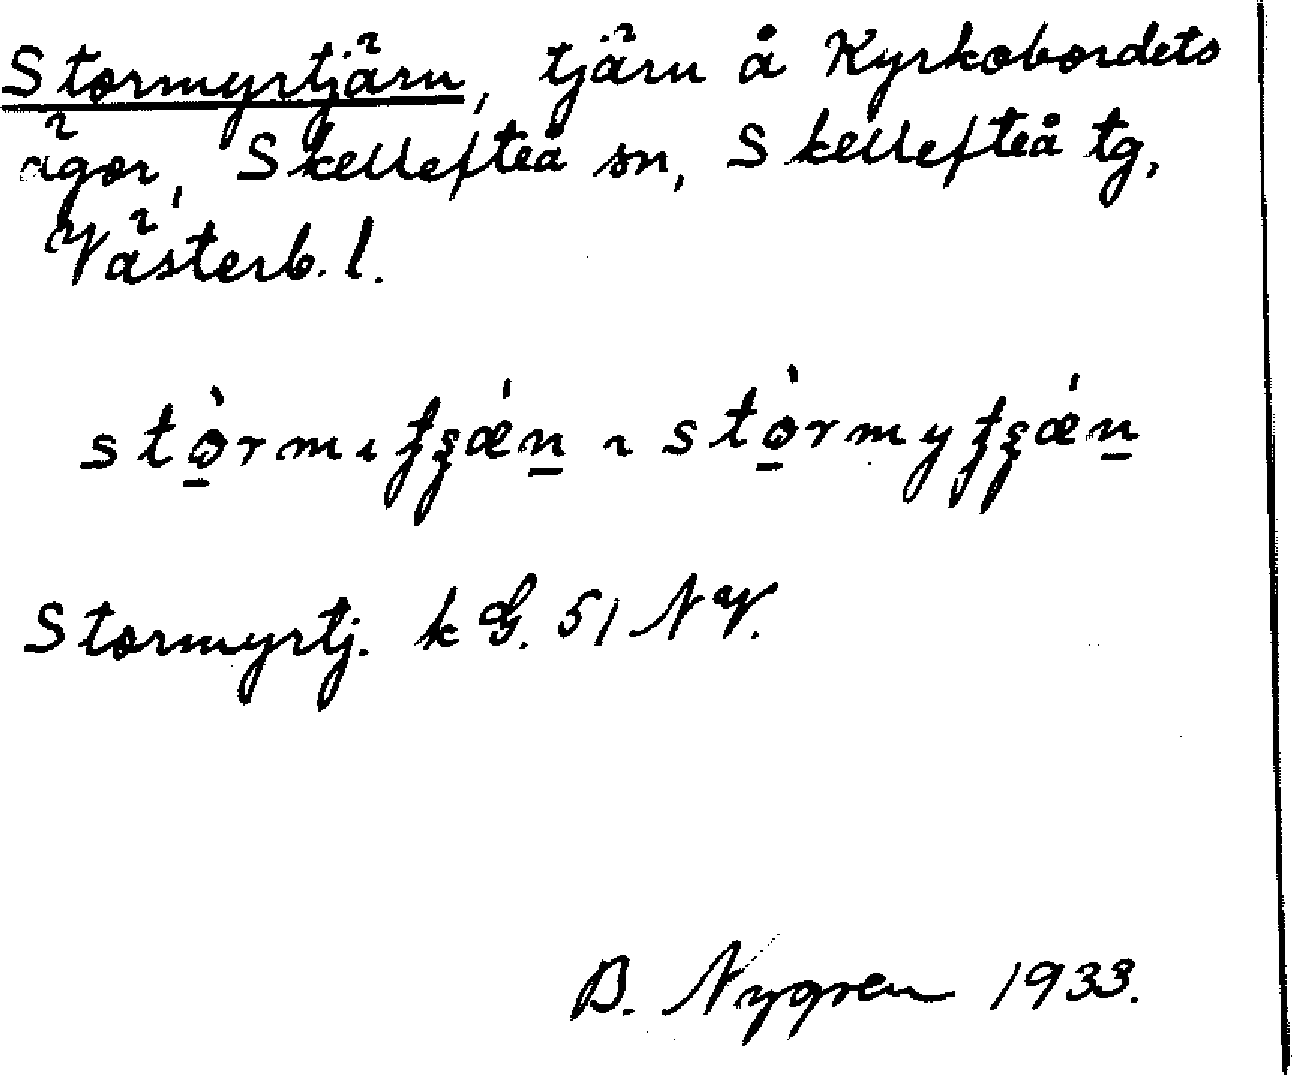 Stormyrtjärn, tjärn å Kyrkobordets
ägor, Skellefteå sn, Skellefteå tg,
Västerb. l.
Stormyrtj. k G. 51 NV.
B. Nygren 1933.